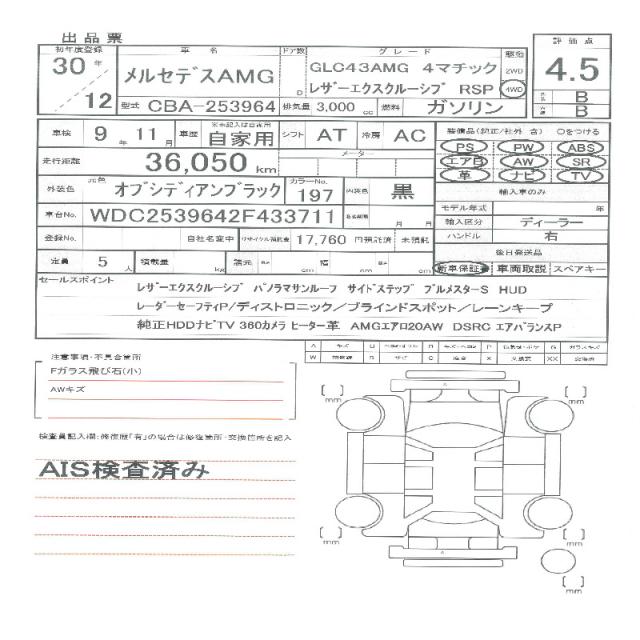 出品票
初年度登録 車名 ドア数 グレード 駆動 評価点
30年 12 メルセデスAMG D GLC43AMG 4マチック 2WD 4.5
レザーエクスクルーシブ RSP 4WD
型式 CBA-253964 排気量 3,000 cc 燃料 ガソリン B
B
車検 9年 11月 車歴 ※未記入は自家用 自家用 シフト AT 冷房 AC 装備品(純正/社外 含) ○をつける
PS PW ABS
走行距離 36,050 km メーター エアB AW SR
革 ナビ TV
外装色 元色 オブシディアンブラック カラーNo. 197 内装色 黒 輸入車のみ
モデル年式 年
車台No. WDC2539642F433711 月 月 輸入区分 ディーラー
ハンドル 右
登録No. 自社名変中 リサイクル預託金 17,760 円預託済 未預託 後日発送品
定員 5人 積載量 kg 荷元 cm 幅 cm cm 新車保証書 車両取説 スペアキー
セールスポイント
レザーエクスクルーシブ パノラマサンルーフ サイドステップ ブルメスターS HUD
レーダーセーフティP/ディストロニック/ブラインドスポット/レーンキープ
純正HDDナビTV 360カメラ ヒーター革 AMGエアロ20AW DSRC エアバランスP
注意事項・不具合箇所
Fガラス飛び石(小)
AWキズ
検査員記入欄:修復歴「有」の場合は修復箇所・交換箇所を記入
AIS検査済み
mm
mm
mm
mm
mm